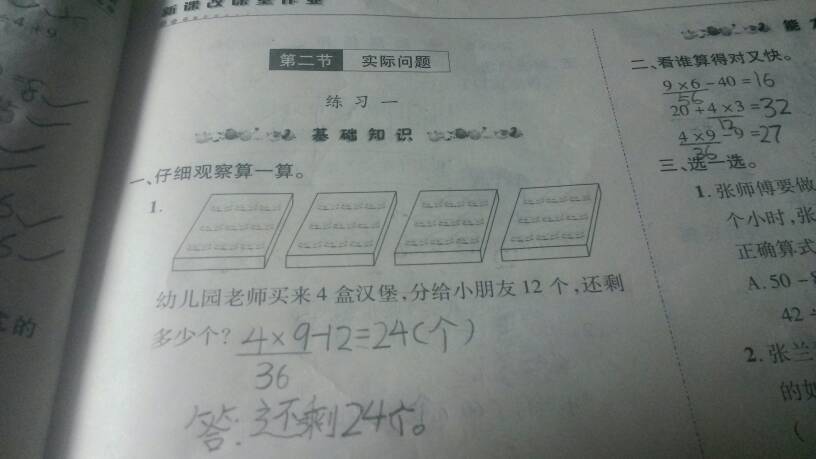 新课改课堂作业
第二节 实际问题
练习一
基础知识
一、仔细观察算一算。
1.
幼儿园老师买来4盒汉堡,分给小朋友12个,还剩
多少个? 4×9-12=24(个)
36
答:还剩24个。
能
二、看谁算得对又快。
9×6-40=16
56
20+4×3=32
12
4×9-9=27
36
三、选一选。
1.张师傅要做
个小时,张
正确算式
A.50-8
42÷
2.张兰
的如
(